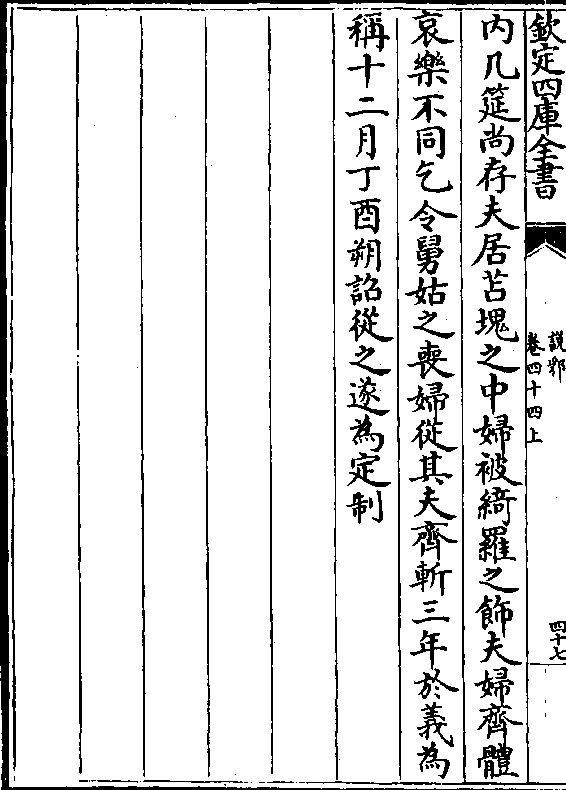 欽定四庫全書
說郛
卷四十四上
四十七
内几筵尚存夫居苫塊之中婦被綺羅之飾夫婦齊體
哀樂不同乞令舅姑之喪婦從其夫齊斬三年於義為
稱十二月丁酉朔詔從之遂為定制